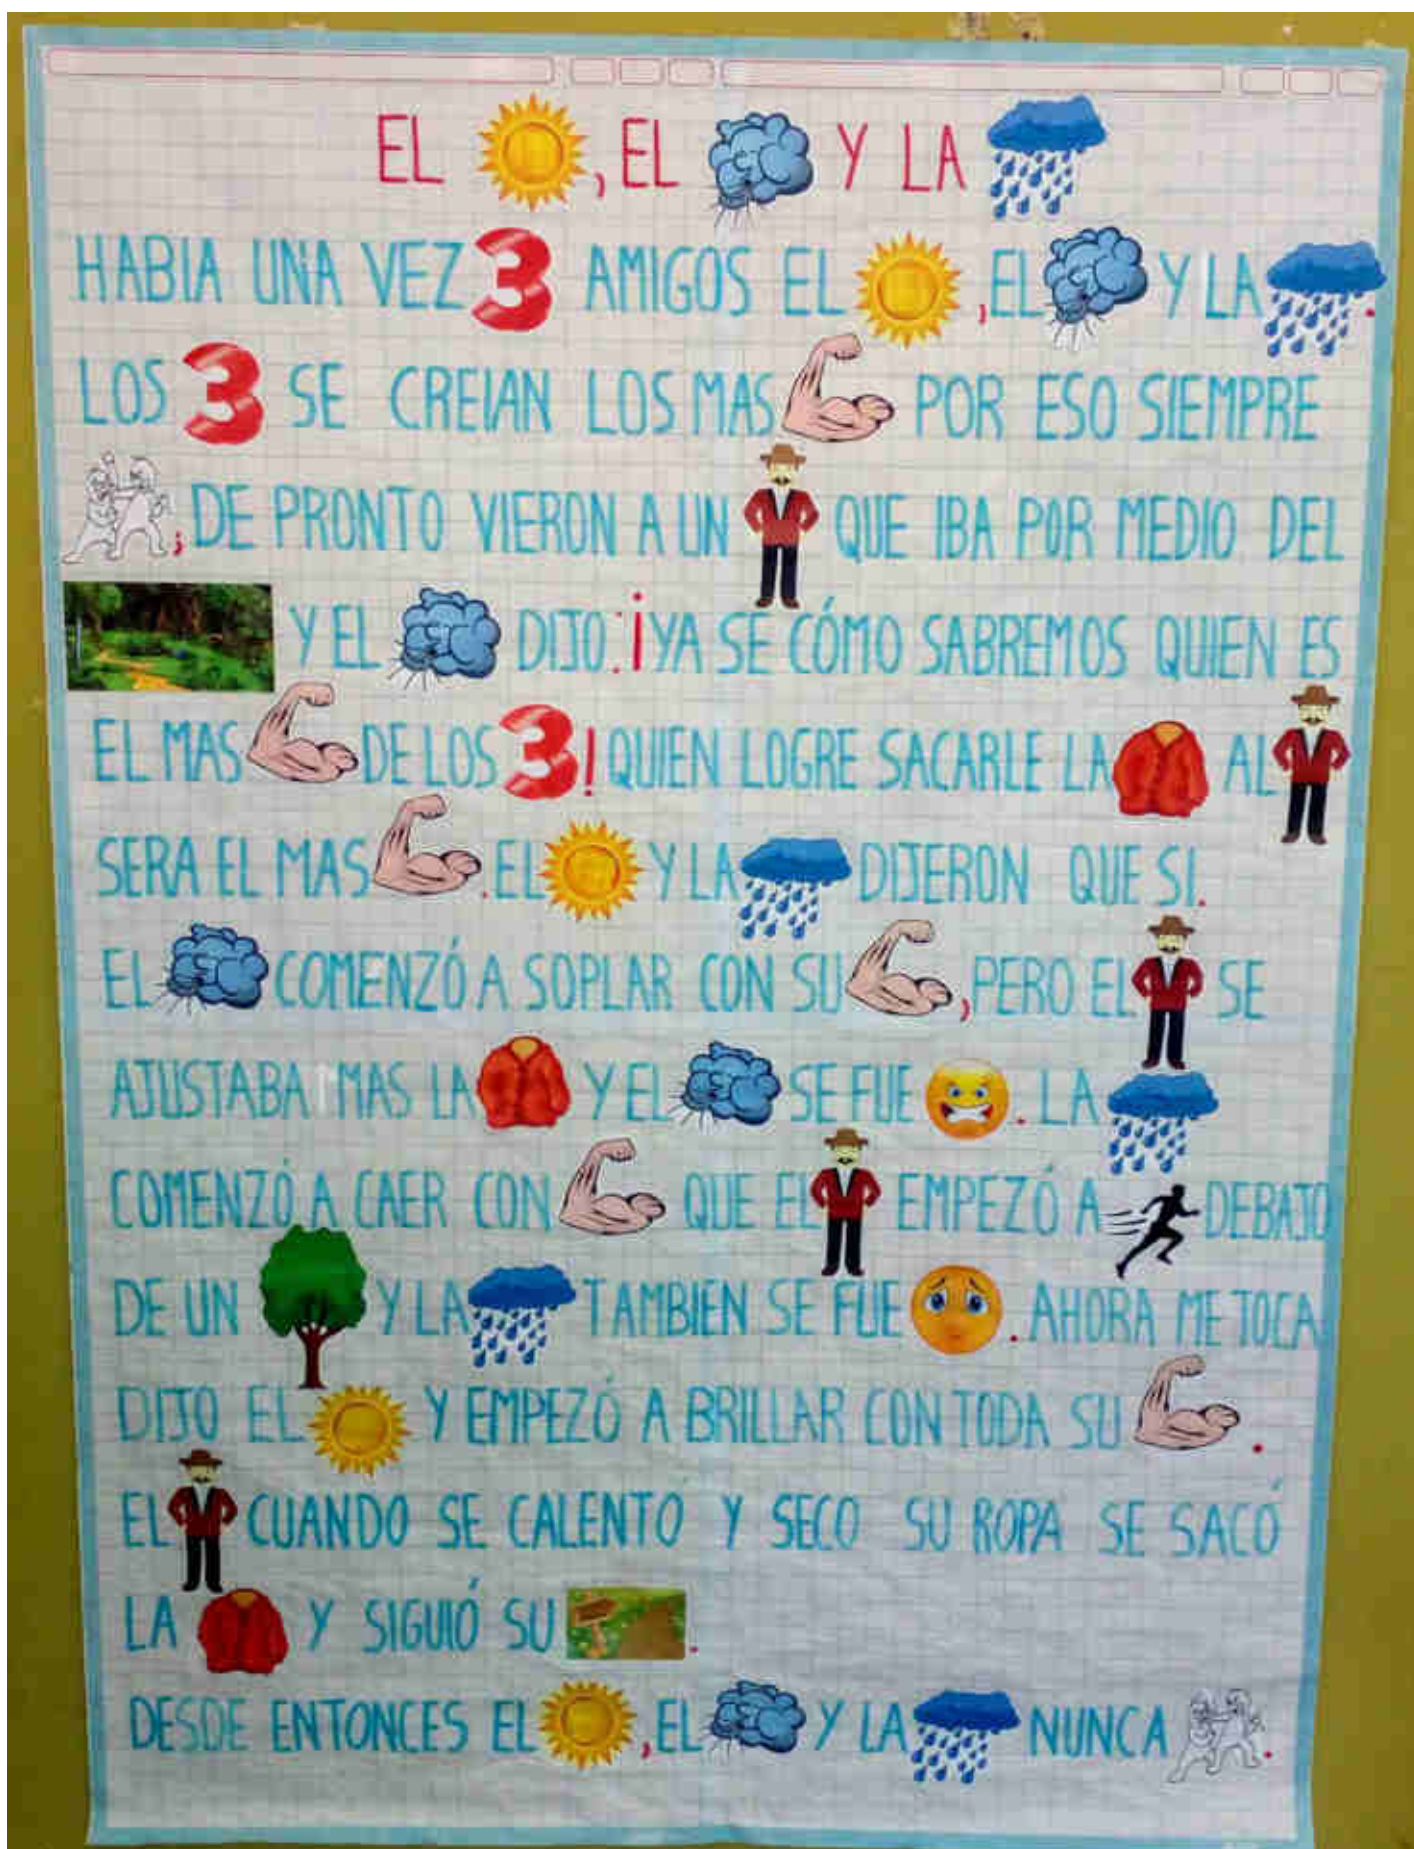 EL , EL Y LA
HABIA UNA VEZ 3 AMIGOS EL , EL Y LA .
LOS 3 SE CREIAN LOS MAS POR ESO SIEMPRE
; DE PRONTO VIERON A UN QUE IBA POR MEDIO DEL
Y EL DIJO: ¡YA SE CÓMO SABREMOS QUIEN ES
EL MAS DE LOS 3! QUIEN LOGRE SACARLE LA AL
SERA EL MAS . EL Y LA DIJERON QUE SI.
EL COMENZÓ A SOPLAR CON SU , PERO EL SE
AJUSTABA MAS LA Y EL SE FUE . LA
COMENZÓ A CAER CON QUE EL EMPEZÓ A DEBAJO
DE UN Y LA TAMBIEN SE FUE . AHORA ME TOCA
DIJO EL Y EMPEZÓ A BRILLAR CON TODA SU .
EL CUANDO SE CALENTÓ Y SECO SU ROPA SE SACÓ
LA Y SIGUIÓ SU .
DESDE ENTONCES EL , EL Y LA NUNCA .